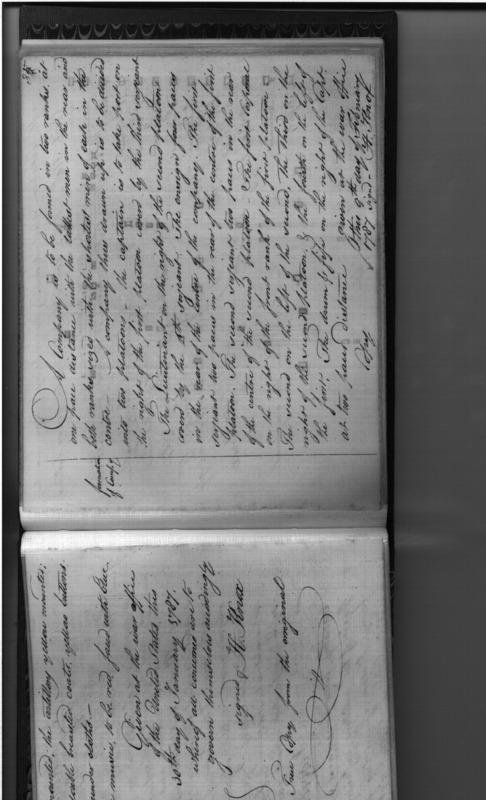 mounted, the artillery yellow mounted;
breasted coats, yellow buttons
under cloths —
music, to be red faced with blue
Given at the war office
of the United States this
30th day of January 1787.
whereof all concerned are to
govern themselves accordingly
signed H. Knox
True Copy from the original
formation
of Comp.y
A Company is to be formed in two ranks, at
one pace distance with the tallest men in the rear and
both ranks sized with the shortest men of each in the
centre — A company thus drawn up is to be divided
into two platoons — the captain is to take post on
the right of the first platoon covered by the third sergeant
The Lieutenant on the right of the second platoon
covered by the 4th sergeant. The ensign four paces
in the rear of the center of the company. The first
sergeant two paces in the rear of the center of the first
platoon. The second sergeant two paces in the rear
of the center of the second platoon. The first corporal
on the right of the front rank of the first platoon
The second on the left of the second. The third on the
right of the second platoon, & the fourth on the left of
the first. The drum & fife on the right of the Capt.
at two paces distance
Given at the war office
this day of February
1787
Copy